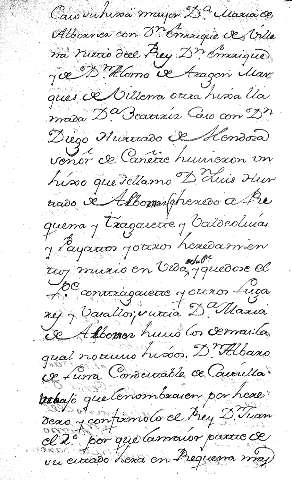 Caso su hixa mayor D.ª Maria de
Albornoz con D.n Enrrique de Ville
na nieto del Rey D.n Enrrique
y de D.n Alonso de Aragon Mar
ques de Villena otra hixa lla
mada D.ª Beatriz Caso con D.n
Diego Hurtado de Mendoza
señor de Cañete huuieron un
hixo que se llamo D.n Luis Hur
tado de Albornoz heredo a
y Tragacete y Valdeoliuas
y y otros heredamien
tos murio en Vida y quedose el
con tragacete y otros Luga
res y Vasallos su tia D.ª Maria
de Albornoz huuo los demas la
qual no tuuo hixos. D.n Albaro
de Luna Condestable de Castilla
trabajo que le nombrasen por here
dero y confirmolo el Rey D.n Juan
el 2.º por que la mayor parte de
su estado hera en